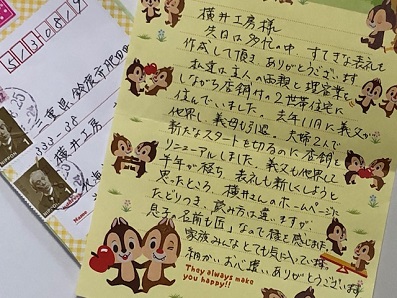 横井工房様
先日は多忙の中、すてきな表札を
作成して頂き、ありがとうございます
私達は主人の両親と理容業を
しながら店舗付の2世帯住宅に
住んでいました。去年11月に義父が
他界し、義母も引退。夫婦2人で
新たなスタートを切るのに店舗を
リニューアルしました。義父も他界して
半年が経ち、表札も新しくしようと
思ったところ、横井さんのホームページに
たどりつき、読み方は違いますが
息子の名前も匠」なので縁を感じました。
家族みんなとても気に入っています。
細かいお心遣い、ありがとうございます
They always make
you happy!!
三重県鈴鹿市
横井工房